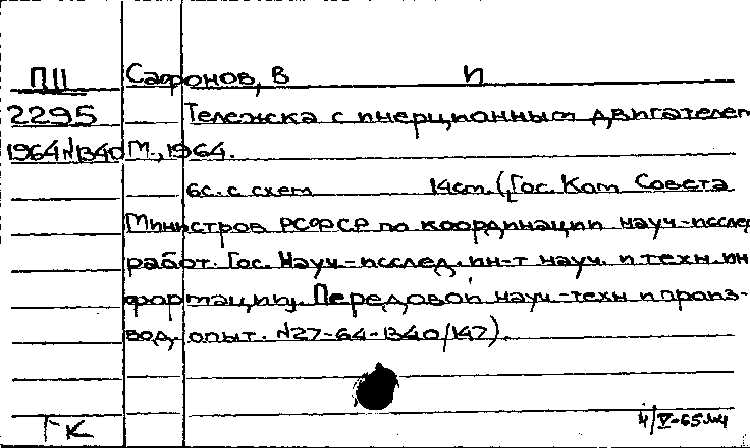 П11 Сафонов, В п
2295 Тележка с инерционным двигателем
1964 №1340 М., 1964.
6с. с схем 14см. (Гос. Ком Совета
Министров РСФСР по координации науч-исслед
работ. Гос. Науч-исслед. ин-т науч. и техн. ин
формации. Передовой науч-техн и произ-
вод. опыт. №27-64-1340/147).
ГК 4/V-65